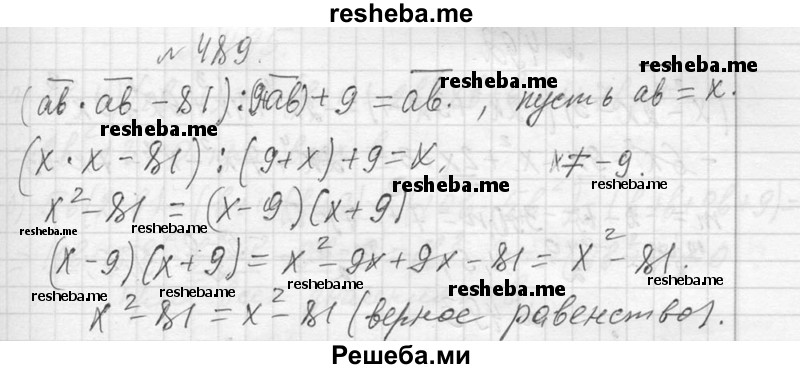 resheba.me
№ 489.
(ab · ab – 81) : (9+ab) + 9 = ab. resheba.me , пусть ab = x. resheba.me
resheba.me
(x · x – 81) : (9+x) + 9 = x, x ≠ –9.
resheba.me resheba.me
x² – 81 = (x–9)(x+9)
resheba.me resheba.me resheba.me
(x–9)(x+9) = x² – 9x + 9x – 81 = x² – 81.
resheba.me resheba.me resheba.me resheba.me
x² – 81 = x² – 81 (верное равенство).
Решеба.ми